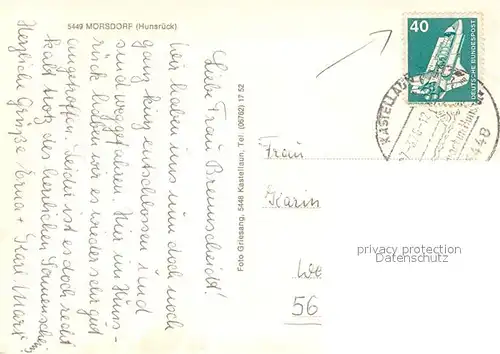 5449 MÖRSDORF (Hunsrück)
Liebe Frau Bremscheidt!
Wir haben uns nun doch noch
ganz kurz entschlossen und
sind weggefahren. Hier im Huns-
rück haben wir es wieder sehr gut
angetroffen. Leider ist es doch recht
kalt trotz des herrlichen Sonnenschein
Herzliche Grüße Erna + Karl Marx
Foto Griesang, 5448 Kastellaun, Tel. (06762) 17 52
40
DEUTSCHE BUNDESPOST
KASTELLAUN
5448
Frau
Karin
56
privacy protection
AnsichtskartenVersand